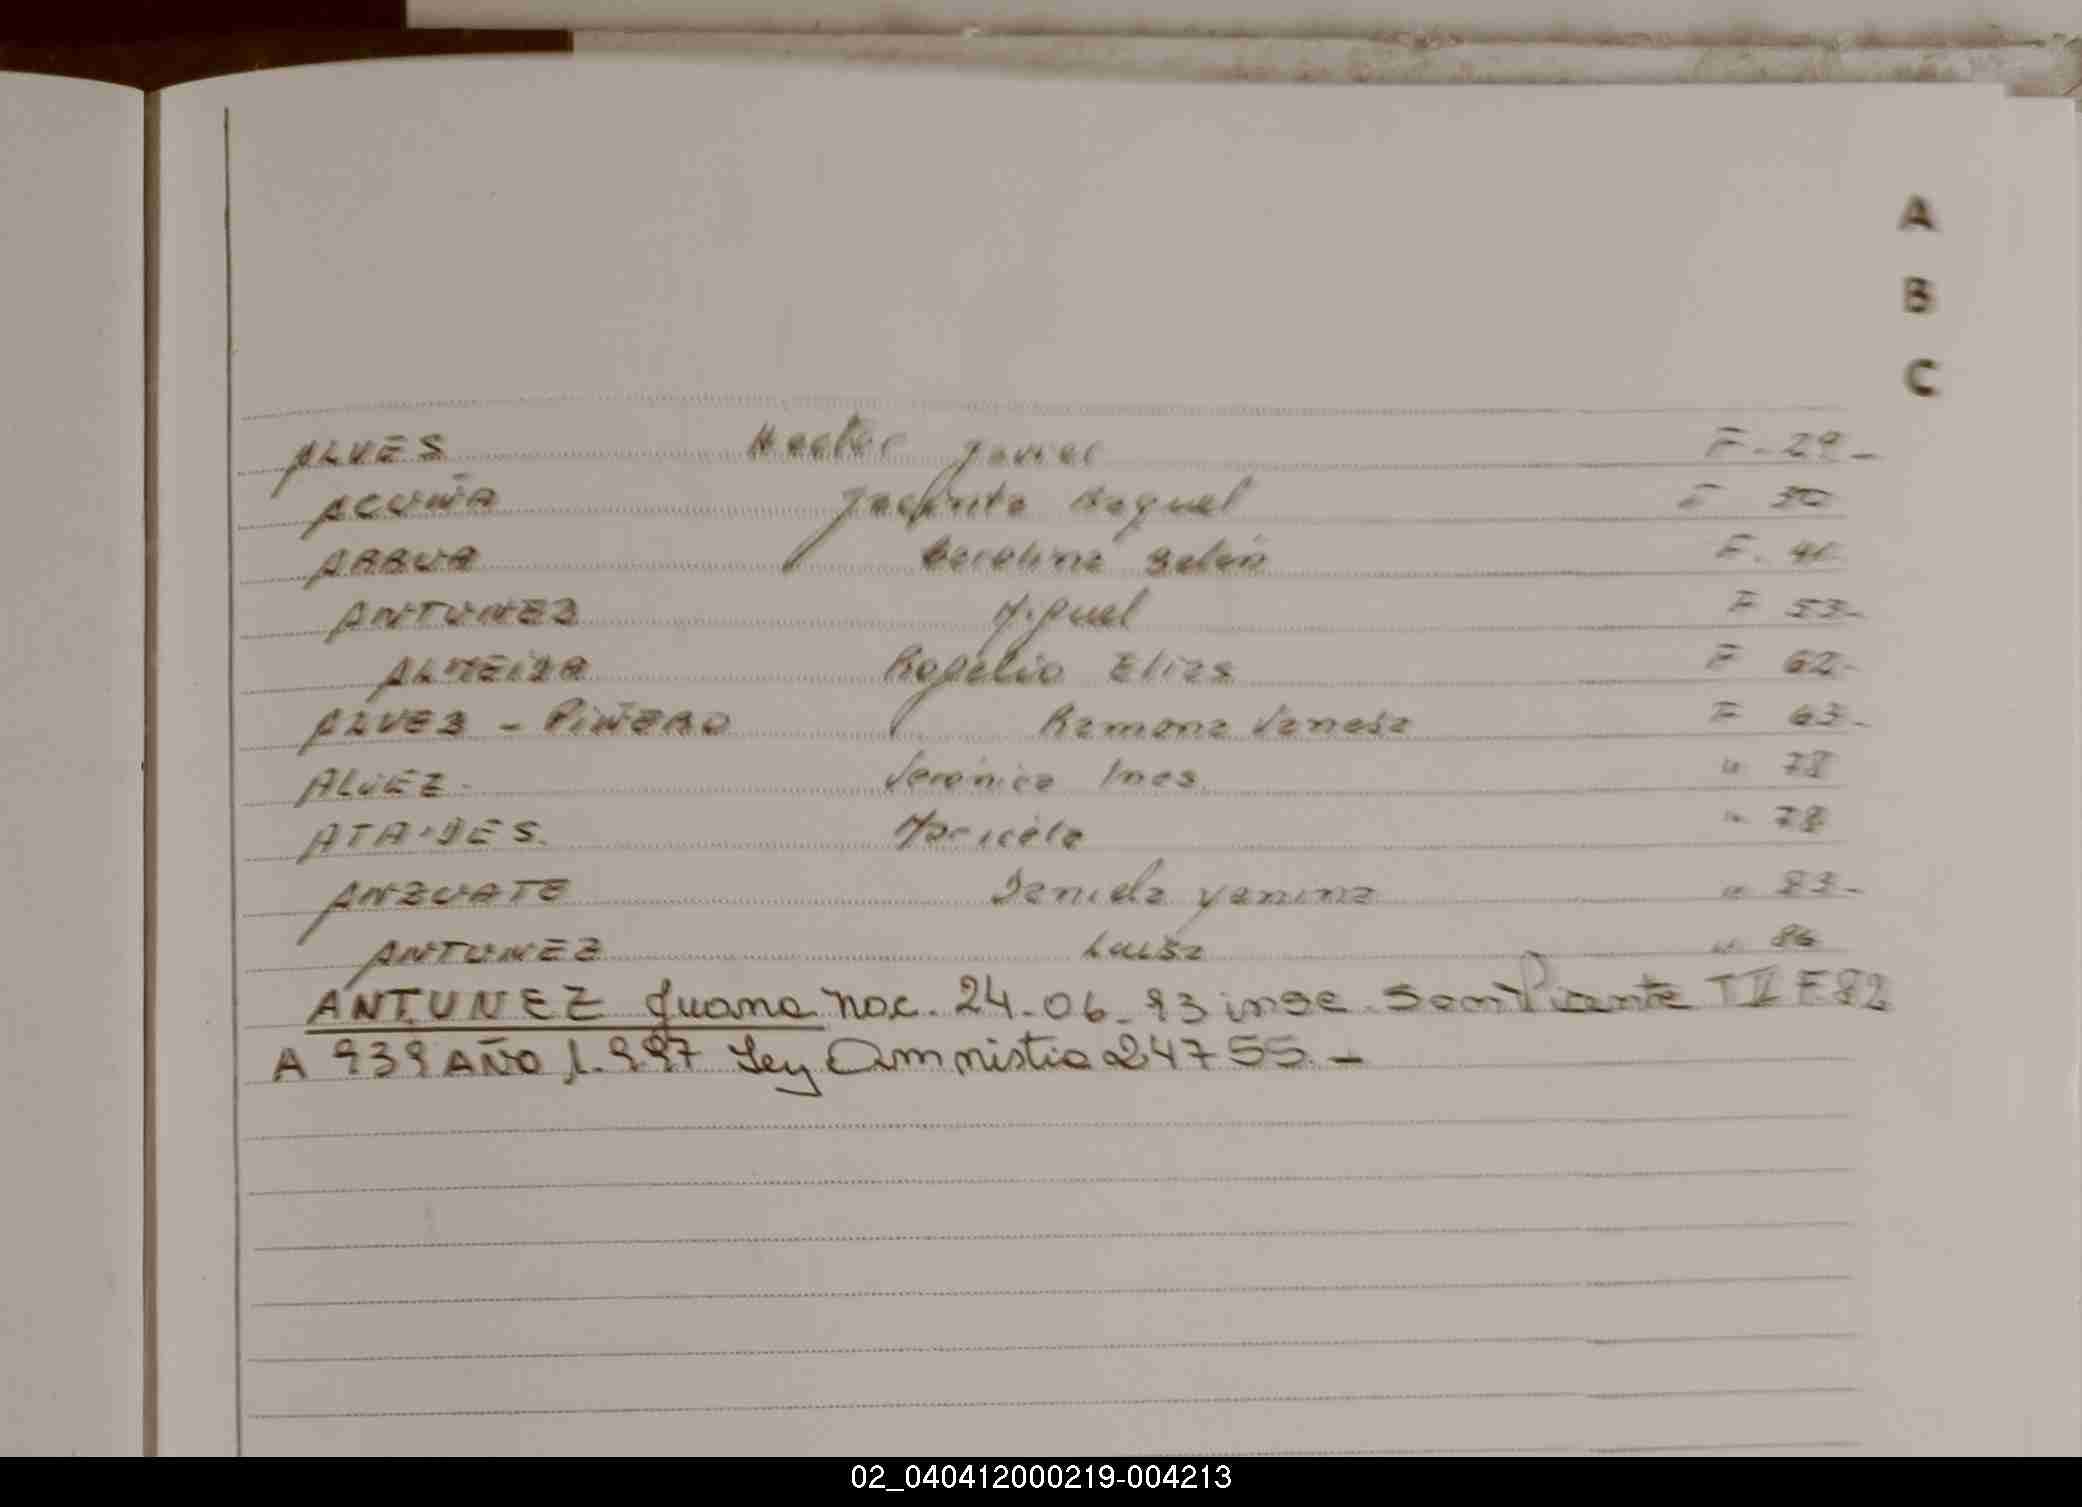 A
B
C
ALVES Hector Javier F - 29 -
ACUÑA Jacinto Raquel F 30
ARRUA Carolina Belén F. 40
ANTUNEZ Miguel F 53-
ALMEIDA Rogelio Elias F 62-
ALVEZ - PIÑERO Ramona Vanesa F 63-
ALVEZ - Verónica Ines. " 78
ATAIDES. Maricela " 78
ANZUATE Daniela Yanina " 83-
ANTUNEZ Luisa " 86
ANTUNEZ Juana Nac. 24-06-93 insc. TII F 82
A 939 AÑO 1.997 Ley Amnistia 24755.-
02_040412000219-004213